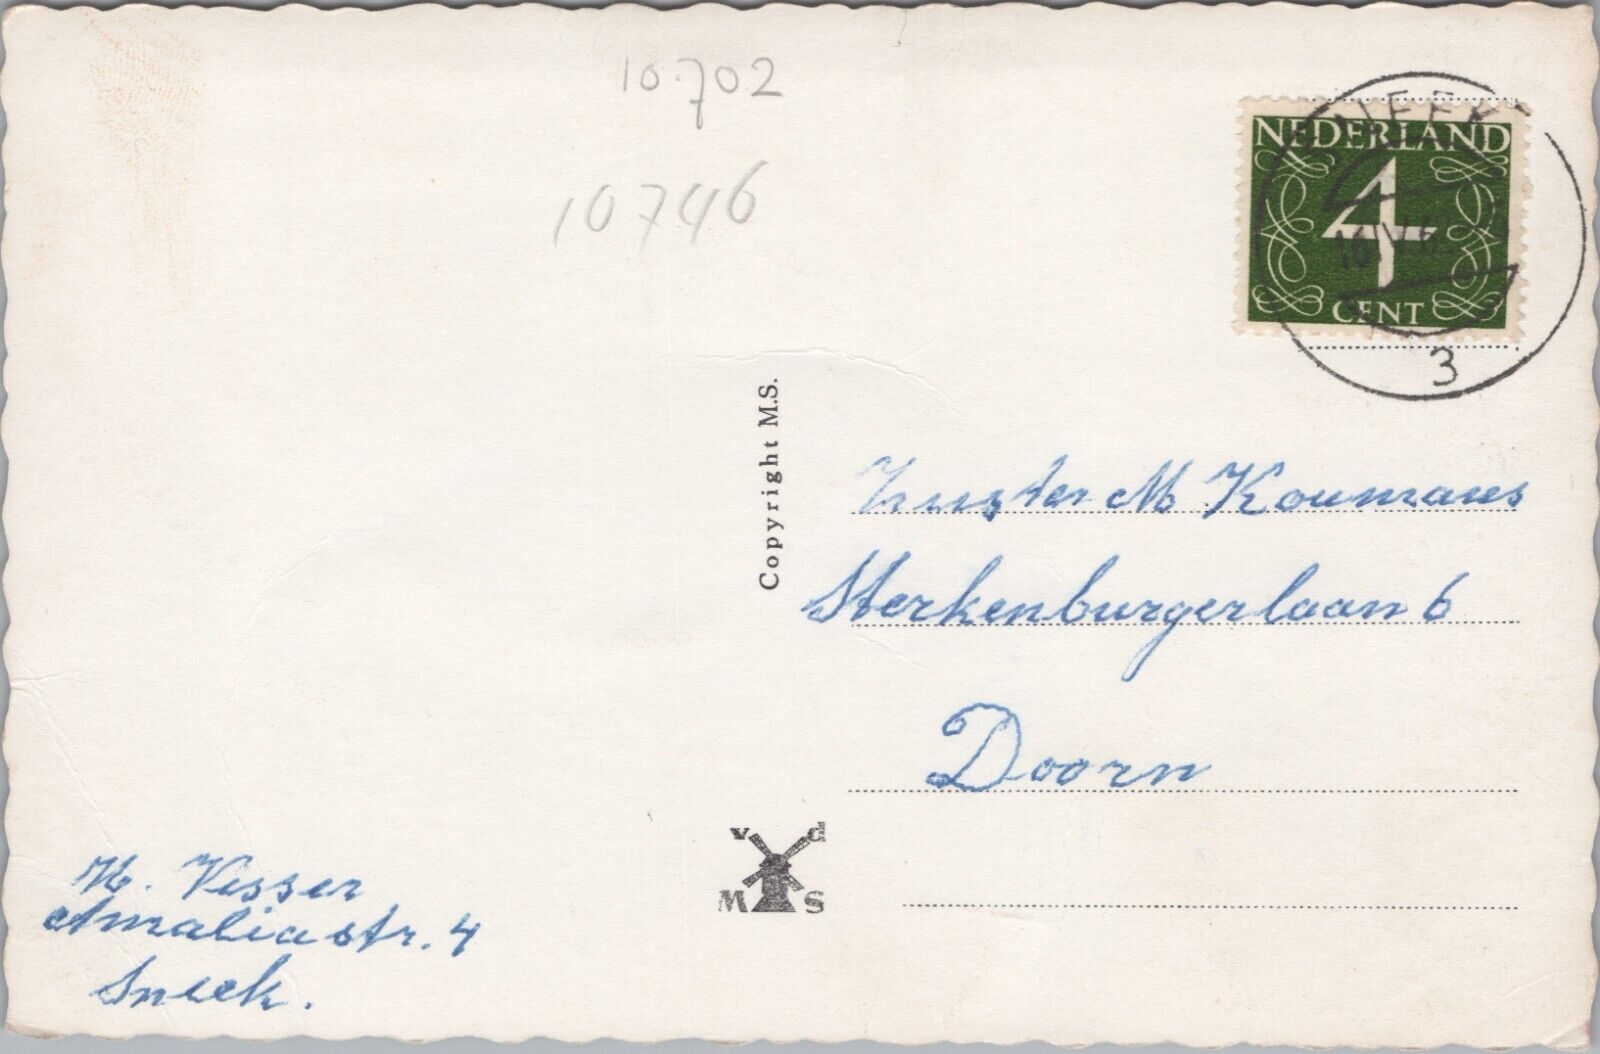 10.702
10746
NEDERLAND
4
CENT
SNEEK
3
Copyright M.S.
Zuster M Koumans
Sterkenburgerlaan 6
Doorn
v d
M S
H. Visser
Amaliastr. 4
Sneek.